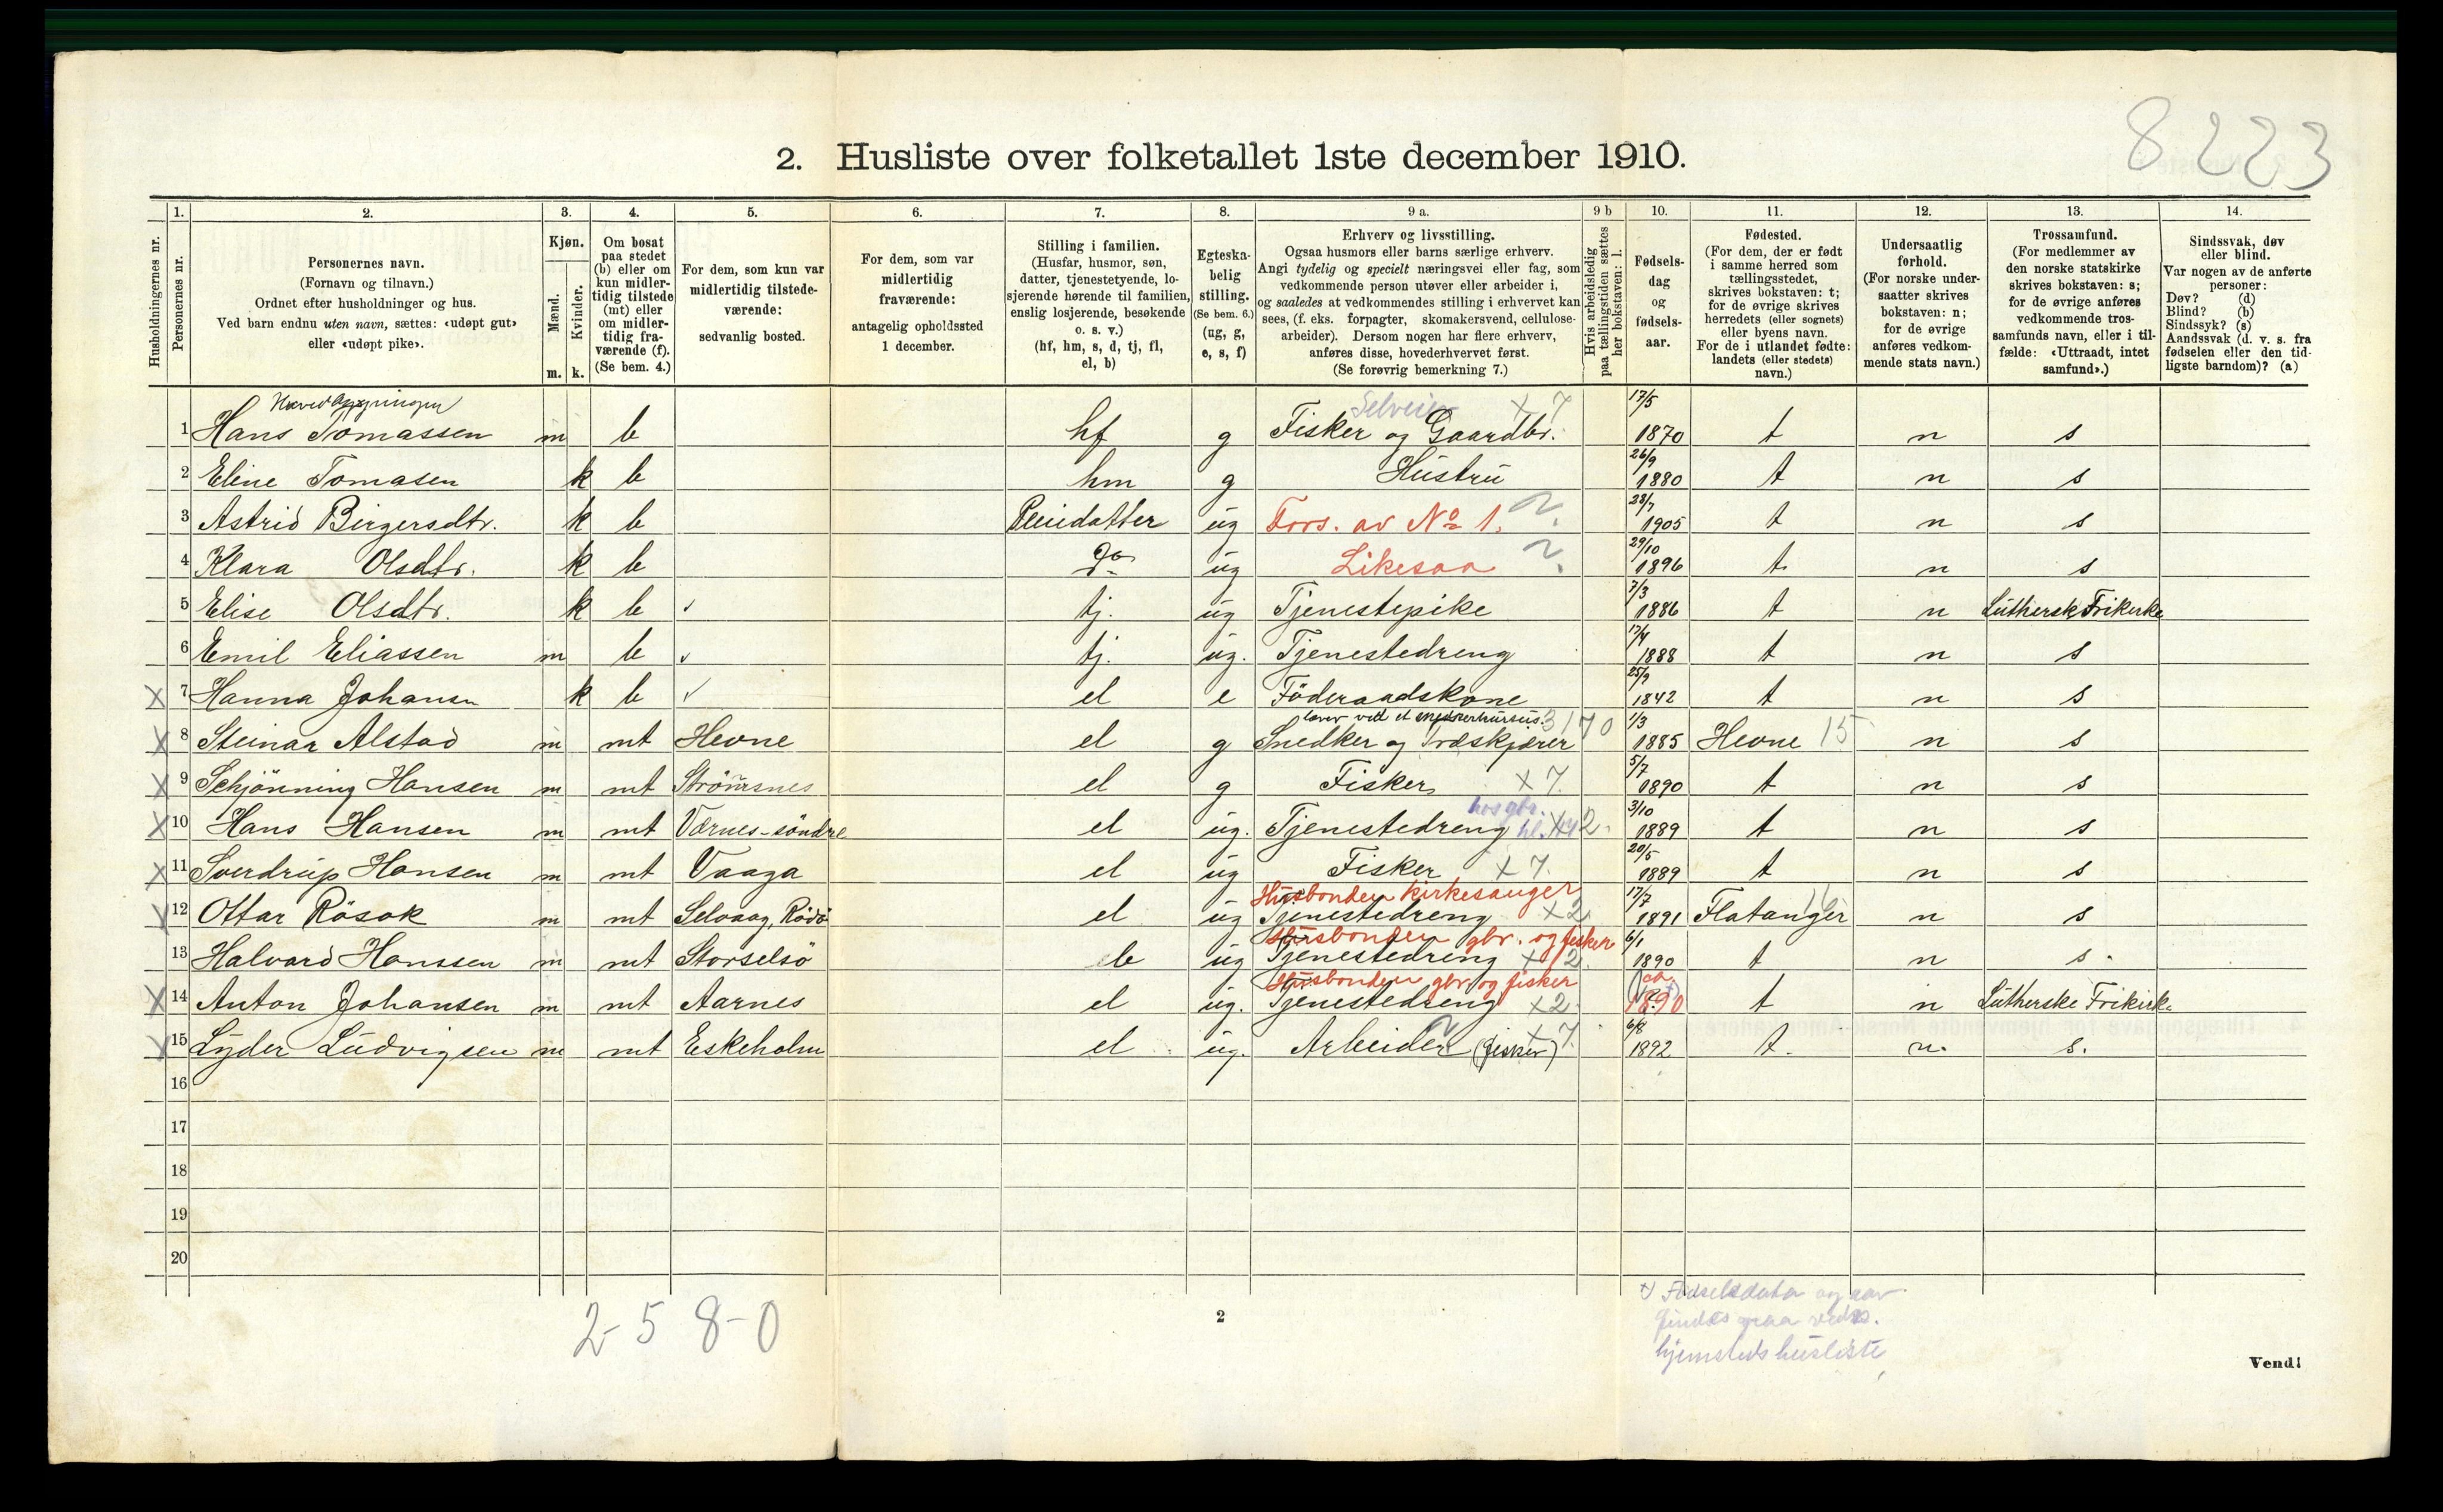 8223
2. Husliste over folketallet 1ste december 1910.
Husholdningernes nr.
1. Personernes nr.
2. Personernes navn.
(Fornavn og tilnavn.)
Ordnet efter husholdninger og hus.
Ved barn endnu uten navn, sættes: «udøpt gut»
eller «udøpt pike».
3. Kjøn.
Mænd. Kvinder.
m. k.
4. Om bosat
paa stedet
(b) eller om
kun midler-
tidig tilstede
(mt) eller
om midler-
tidig fra-
værende (f).
(Se bem. 4.)
5. For dem, som kun var
midlertidig tilstede-
værende:
sedvanlig bosted.
6. For dem, som var
midlertidig
fraværende:
antagelig opholdssted
1 december.
7. Stilling i familien.
(Husfar, husmor, søn,
datter, tjenestetyende, lo-
sjerende hørende til familien,
enslig losjerende, besøkende
o. s. v.)
(hf, hm, s, d, tj, fl,
el, b)
8. Egteska-
belig
stilling.
(Se bem. 6.)
(ug, g,
e, s, f)
9 a. Erhverv og livsstilling.
Ogsaa husmors eller barns særlige erhverv.
Angi tydelig og specielt næringsvei eller fag, som
vedkommende person utøver eller arbeider i,
og saaledes at vedkommendes stilling i erhvervet kan
sees, (f. eks. forpagter, skomakersvend, cellulose-
arbeider). Dersom nogen har flere erhverv,
anføres disse, hovederhvervet først.
(Se forøvrig bemerkning 7.)
9 b Hvis arbeidsledig
paa tællingstiden sættes
her bokstaven: l.
10. Fødsels-
dag
og
fødsels-
aar.
11. Fødested.
(For dem, der er født
i samme herred som
tællingsstedet,
skrives bokstaven: t;
for de øvrige skrives
herredets (eller sognets)
eller byens navn.
For de i utlandet fødte:
landets (eller stedets)
navn.)
12. Undersaatlig
forhold.
(For norske under-
saatter skrives
bokstaven: n;
for de øvrige
anføres vedkom-
mende stats navn.)
13. Trossamfund.
(For medlemmer av
den norske statskirke
skrives bokstaven: s;
for de øvrige anføres
vedkommende tros-
samfunds navn, eller i til-
fælde: «Uttraadt, intet
samfund».)
14. Sindssvak, døv
eller blind.
Var nogen av de anførte
personer:
Døv? (d)
Blind? (b)
Sindssyk? (s)
Aandssvak (d. v. s. fra
fødselen eller den tid-
ligste barndom)? (a)
Selveier x 7 17/5
1 Hans Tomassen m b hf g Fisker og Gaardbr. 1870 t n s
2 Eline Tomasen k b hm g Hustru 26/9 1880 t n s
3 Astrid Birgersdtr. k b Pleiedatter ug Fors. av No 1. 28/7 1905 t n s
4 Klara Olsdtr. k b do ug Likesaa 29/10 1896 t n s
5 Elise Olsdtr. k b tj. ug Tjenestepike 7/3 1886 t n Luthersk Frikirke
6 Emil Eliassen m b tj. ug. Tjenestedreng 17/4 1888 t n s
x 7 Hanna Johansn k b el e Föderaadskone 25/9 1842 t n s
lærer ved et snedkerkursus. 3170
x 8 Steinar Alstad m mt Hevne el g Snedker og Træskjærer 1/3 1885 Hevne 15 n s
x 9 Schjönning Hansen m mt Strömsnes el g Fisker x 7. 5/7 1890 t n s
hos gbr.
x 10 Hans Hansen m mt Værnes-söndre el ug. Tjenestedreng x 2. 3/10 1889 t n s
x 11 Sverdrup Hansen m mt Vaaga el ug Fisker x 7. 20/5 1889 t n s
Husbonden kirkesanger
12 Ottar Rösok m mt Selvaag, Rödö el ug Tjenestedreng x 2 17/7 1891 Flatanger n s
Husbonden gbr. og fisker
13 Halvard Hanssen m mt Storselsö ug Tjenestedreng x 2. 6/1 1890 t n s.
Husbonden gbr og fisker
x 14 Anton Johansen m mt Aarnes el ug. Tjenestedreng x 2. ca 1890 t n Lutherske Frikirke
15 Lyder Ludvigsen m mt Eskeholm el ug. Arbeider (fisker) x 7. 6/8 1892 t. n. s.
16
17
18
19
20
2-5 8-0
2
x) Fødselsdata og aar
findes paa vedk.
hjemsteds husliste
Vend!